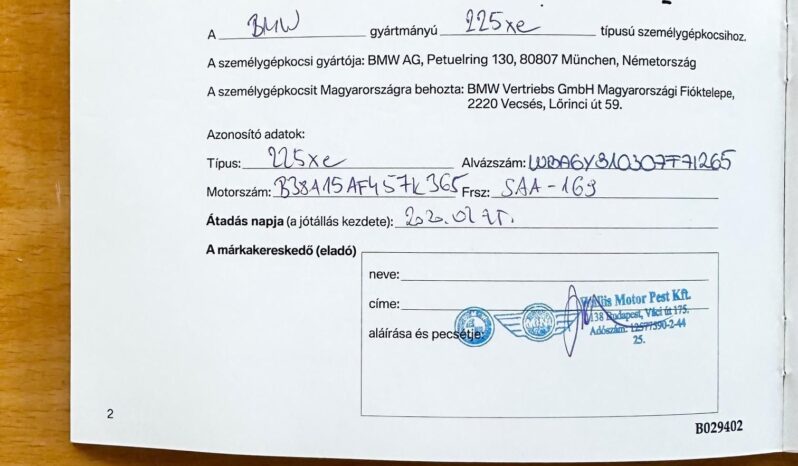 A BMW gyártmányú 225xe típusú személygépkocsihoz.
A személygépkocsi gyártója: BMW AG, Petuelring 130, 80807 München, Németország
A személygépkocsit Magyarországra behozta: BMW Vertriebs GmbH Magyarországi Fióktelepe,
2220 Vecsés, Lőrinci út 59.
Azonosító adatok:
Típus: 225xe Alvázszám: WBA6Y310307F71265
Motorszám: B38A15AF457K365 Frsz: SAA-169
Átadás napja (a jótállás kezdete): 2020.02
A márkakereskedő (eladó)
neve:
címe:
aláírása és pecsétje:
MINI
Willis Motor Pest Kft.
1138 Budapest, Váci út 175.
Adószám: 12577390-2-44
25.
2
B029402